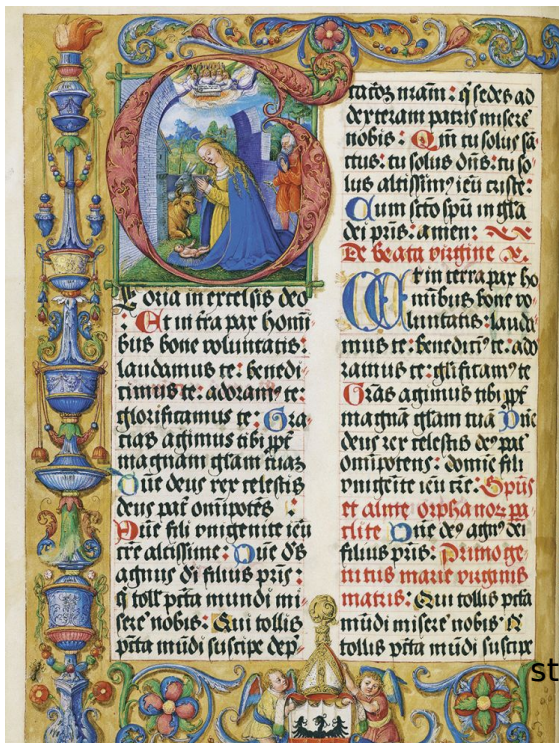 oria in excelsis deo
: Et in tra pax homi
bus bone voluntatis:
laudamus te: benedi
cimus te: adoramꝰ te:
glorificamus te: Gra
tias agimus tibi ppt̄
magnam glam tuaꝫ
Dn̄e deus rex celestis
deus pat̄ omīpotēs
Dn̄e fili vnigenite ieū
cr̄e altissime: Dn̄e ds̄
agnus di filius pr̄is:
q toll' pctā mundi mi
sere nobis: Qui tollis
pctā mūdi suscipe dep
catōꝫ nr̄am: q̄ sedes ad
dexteram patris misere
nobis: Qm̄ tu solus sā
ctus: tu solus dn̄s: tu so
lus altissimꝰ ieū criste:
Cum scto spū in glā
dei pr̄is: amen:
De beata virgine
Et in terra pax ho
minibus bone vo
luntatis: lauda
mus te: benedicimꝰ te: ado
ramus te: glīficamꝰ te
Grās agimus tibi ppt̄
magnā glām tuā Dn̄e
deus rex celestis deꝰ pat̄
omīpotens: domīe fili
vnigenite ieū cr̄e: Spūs
et alme orphanoꝝ pa
clite Dn̄e deꝰ agnꝰ dei
filius pr̄is: Primoge
nitus marie virginis
matris: Qui tollis pctā
mūdi misere nobis:
tollis pctā mūdi suscipe
st